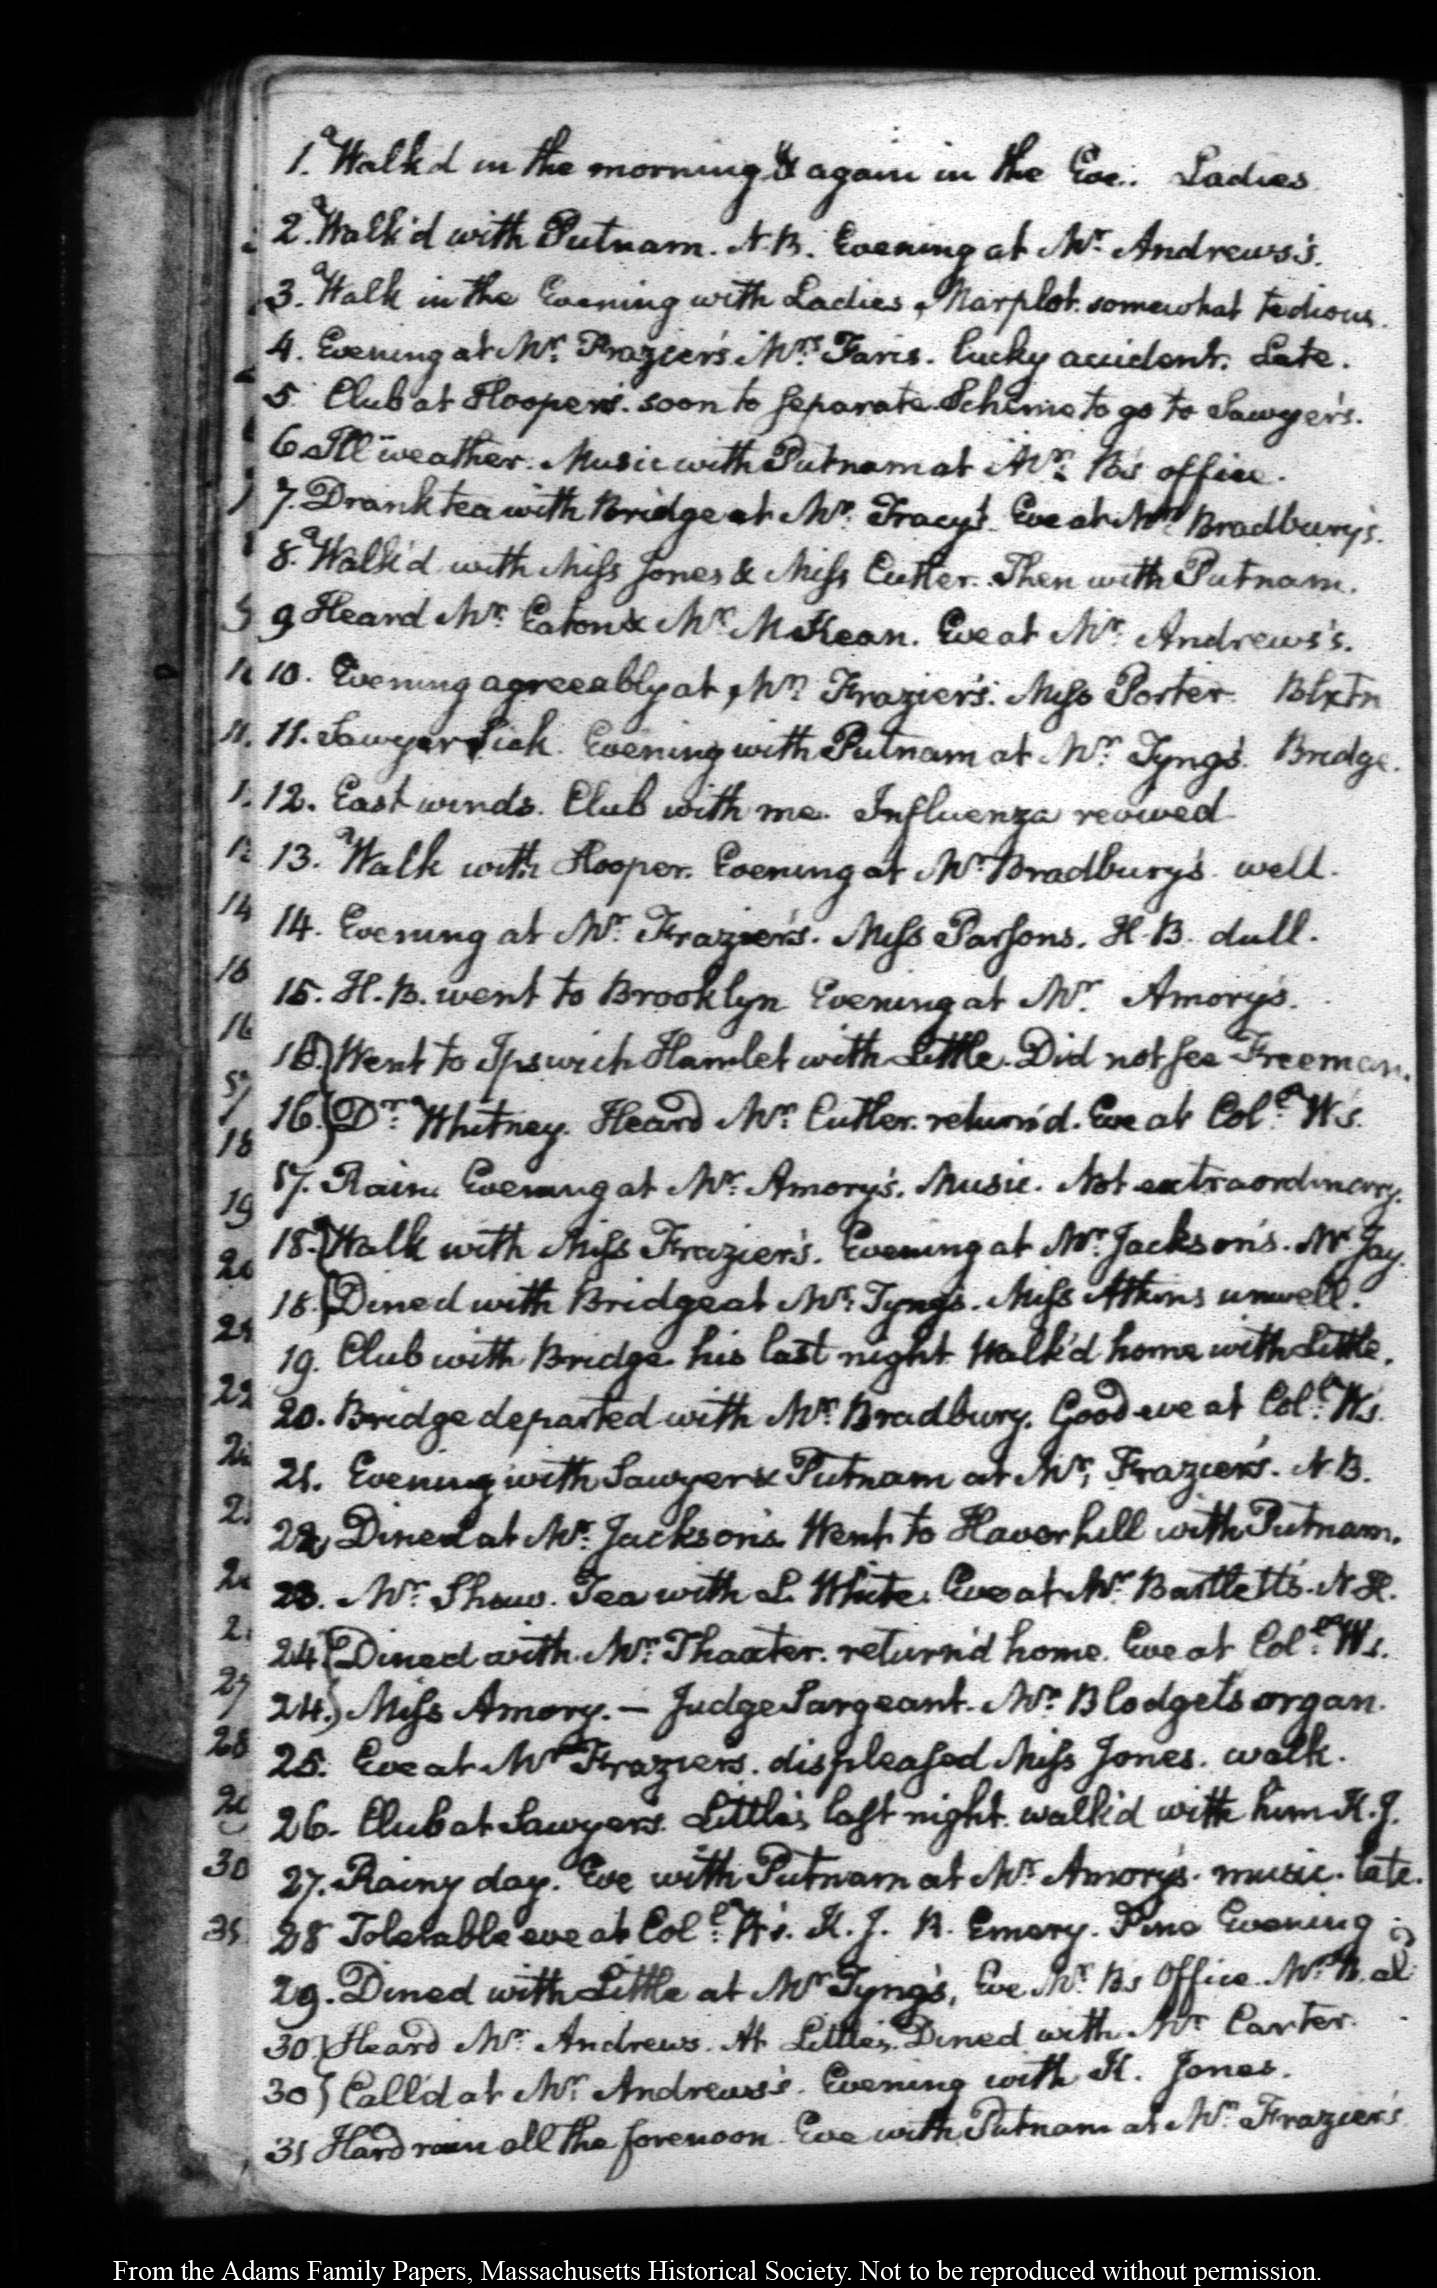 1. Walk'd in the morning, & again in the Eve. Ladies
2. Walk'd with Putnam. N.B. Evening at Mr. Andrews's.
3. Walk in the Evening with Ladies, Marplot. somewhat tedious.
4. Evening at Mr. Frazier's. Mrs. Faris. lucky accident. Late.
5 Club at Hooper's. soon to separate. Scheme to go to Sawyer's.
6 Ill weather. Music with Putnam at Mr. B's office.
7. Drank tea with Bridge at Mr. Tracy's. Eve at Mr. Bradbury's.
8. Walk'd with Miss Jones & Miss Cutler. Then with Putnam.
9 Heard Mr. Eaton & Mr. McKean. Eve at Mr. Andrews's.
10. Evening agreeably at, Mr. Frazier's. Miss Porter
11. Sawyer sick. Evening with Putnam at Mr. Tyng's. Bridge.
12. East winds. Club with me. Influenza revived
13. Walk with Hooper. Evening at Mr. Bradbury's. well.
14. Evening at Mr. Frazier's. Miss Parsons. H.B. dull.
15. H.B. went to Brooklyn Evening at Mr. Amory's.
16. Went to Ipswich Hamlet with Little. Did not see Freeman.
16. Dr. Whitney. Heard Mr. Cutler. return'd. Eve at Coll. W's.
17. Rain. Evening at Mr. Amory's. Music. Not extraordinary.
18. Walk with Miss Frazier's. Evening at Mr. Jackson's. Mr Jay.
18. Dined with Bridge at Mr. Tyng's. Miss Atkins unwell.
19. Club with Bridge his last night Walk'd home with Little.
20. Bridge departed with Mr. Bradbury. Good eve at Coll. W's.
21. Evening with Sawyer & Putnam at Mr. Frazier's. N.B.
22. Dined at Mr. Jackson's Went to Haverhill with Putnam.
23. Mr. Shaw. Tea with L. White. Eve at Mr. Bartlett's. N.H.
24. Dined with Mr. Thaxter. return'd home. Eve at Coll. W's.
24. Miss Amory. — Judge Sargeant. Mr. Blodget's organ.
25. Eve at Mr Frazier's. displeased Miss Jones. walk.
26. Club at Sawyers. Little's last night. walk'd with him K.J.
27. Rainy day. Eve with Putnam at Mr. Amory's. music. late.
28 Tolerable eve at Coll. W's. K.J. R. Emery. Fine Evening
29. Dined with Little at Mr Tyng's, Eve Mr. B's Office. Mr. B.
30 Heard Mr. Andrews. At Little's. Dined with Mr Carter.
30 Call'd at Mr. Andrews's. Evening with K. Jones.
31 Hard rain all the forenoon. Eve with Putnam at Mr. Frazier's
From the Adams Family Papers, Massachusetts Historical Society. Not to be reproduced without permission.